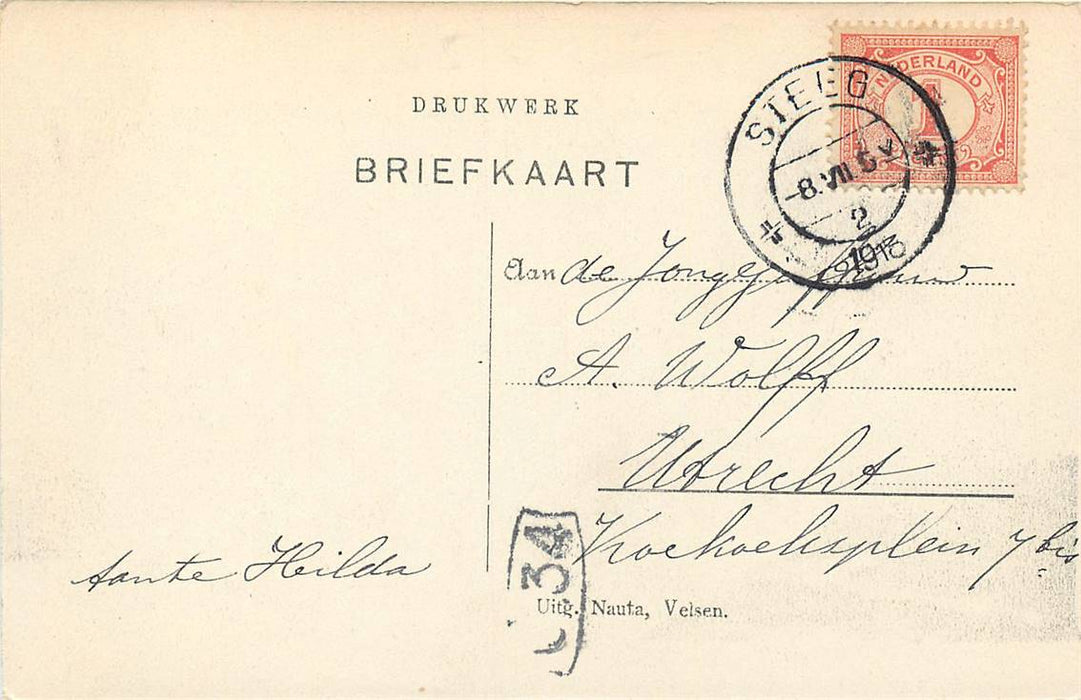 DRUKWERK
BRIEFKAART
NEDERLAND
1
STEEG
8.VII.
2
1913
Aan de Jongejuffrouw
A. Wolff
Utrecht
Koekoeksplein 7 bis
tante Hilda
34
Uitg. Nauta, Velsen.